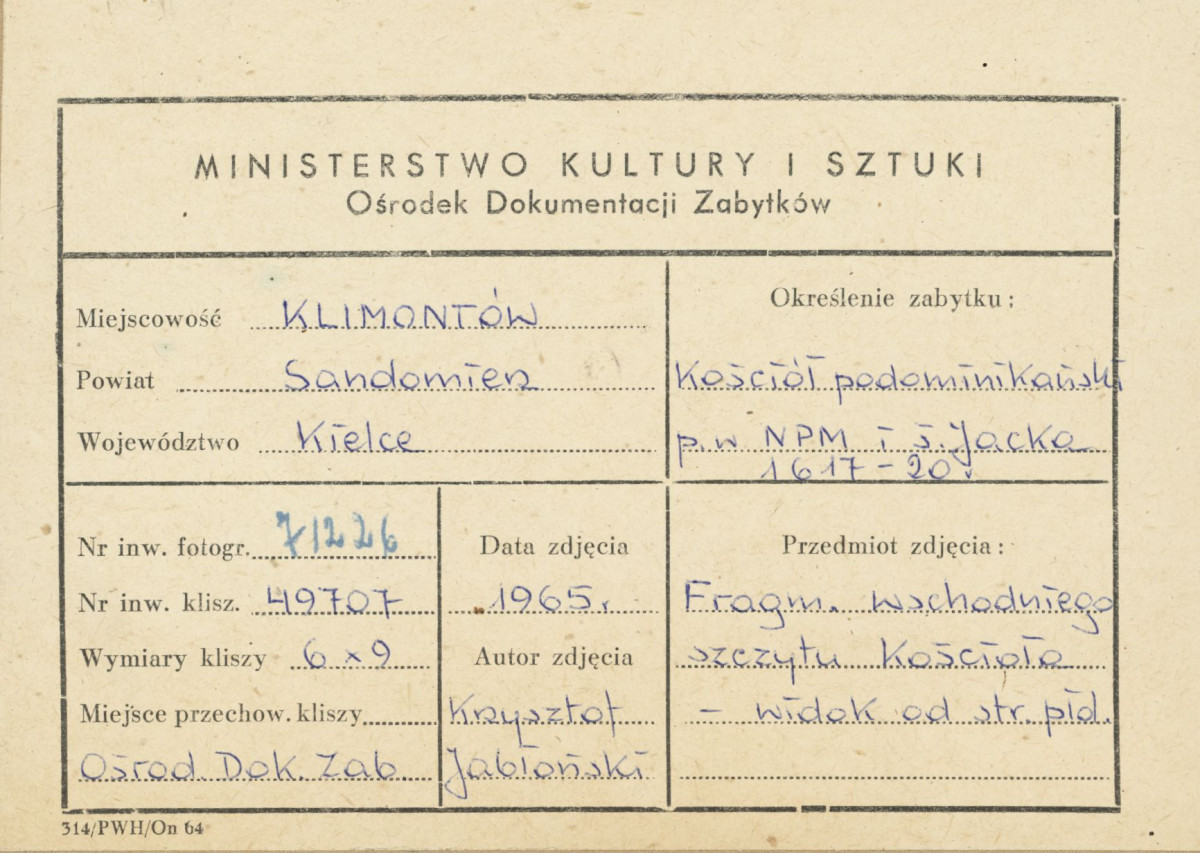 MINISTERSTWO KULTURY I SZTUKI
Ośrodek Dokumentacji Zabytków
Miejscowość KLIMONTÓW
Powiat Sandomierz
Województwo Kielce
Określenie zabytku:
Kościół podominikański
p.w NPM i ś. Jacka
1617-20.
Nr inw. fotogr. 71226
Nr inw. klisz. 49707
Wymiary kliszy 6 x 9
Miejsce przechow. kliszy
Ośrod. Dok. Zab
Data zdjęcia
1965.
Autor zdjęcia
Krzysztof
Jabłoński
Przedmiot zdjęcia:
Fragm. wschodniego
szczytu Kościoła
- widok od str. płd.
314/PWH/On 64